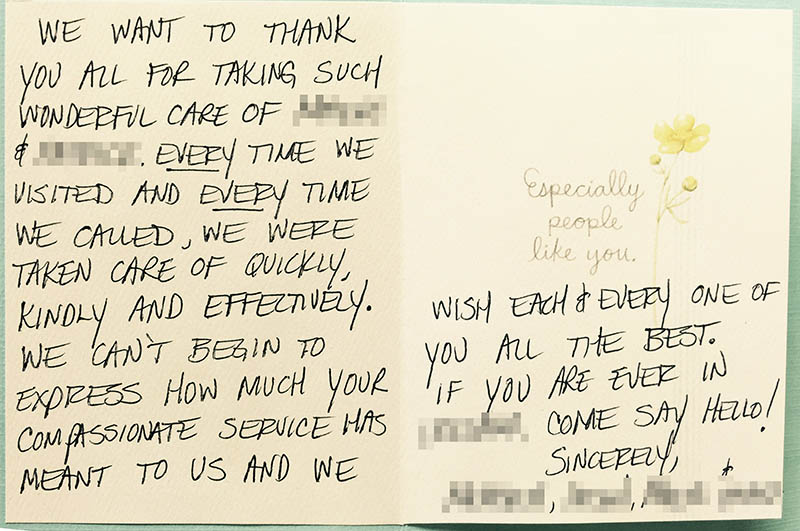 WE WANT TO THANK
YOU ALL FOR TAKING SUCH
WONDERFUL CARE OF
& . EVERY TIME WE
VISITED AND EVERY TIME
WE CALLED, WE WERE
TAKEN CARE OF QUICKLY,
KINDLY AND EFFECTIVELY.
WE CAN'T BEGIN TO
EXPRESS HOW MUCH YOUR
COMPASSIONATE SERVICE HAS
MEANT TO US AND WE
Especially
people
like you.
WISH EACH & EVERY ONE OF
YOU ALL THE BEST.
IF YOU ARE EVER IN
COME SAY HELLO!
SINCERELY,
, , &